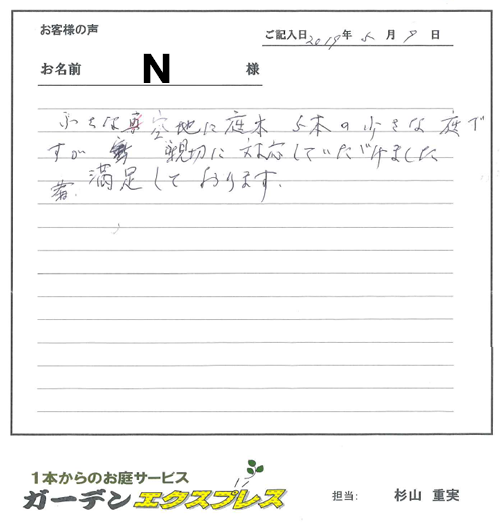 お客様の声
ご記入日 2019年 5月 9日
お名前 N 様
小さな 空地に庭木 5本の小さな庭で
すが 親切に対応していただけました
満足しております.
1本からのお庭サービス
ガーデンエクスプレス
担当: 杉山 重実